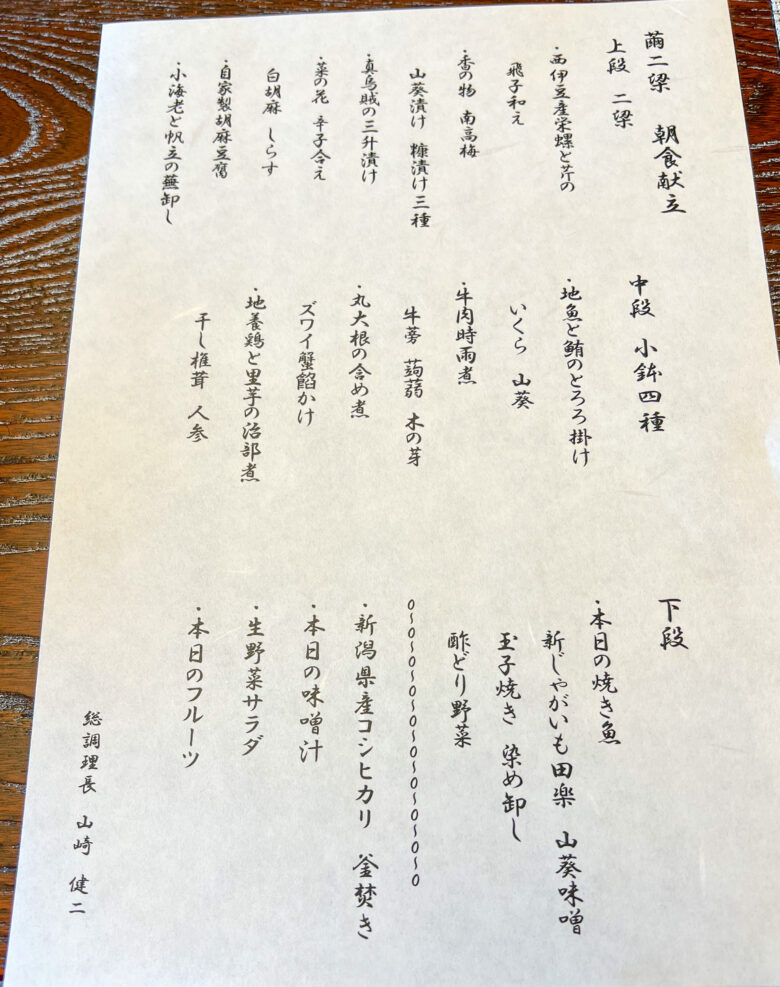 繭二梁 朝食献立
上段 二梁
・西伊豆産栄螺と芹の
飛子和え
・香の物 南高梅
山葵漬け 糠漬け三種
・真烏賊の三升漬け
・菜の花 辛子合え
白胡麻 しらす
・自家製胡麻豆腐
・小海老と帆立の蕪卸し
中段 小鉢四種
・地魚と鮪のとろろ掛け
いくら 山葵
・牛肉時雨煮
牛蒡 蒟蒻 木の芽
・丸大根の含め煮
ズワイ蟹餡かけ
・地養鶏と里芋の治部煮
干し椎茸 人参
下段
・本日の焼き魚
新じゃがいも田楽 山葵味噌
玉子焼き 染め卸し
酢どり野菜
o~o~o~o~o~o~o~o~o~o~o
・新潟県産コシヒカリ 釜焚き
・本日の味噌汁
・生野菜サラダ
・本日のフルーツ
総調理長 山崎 健二